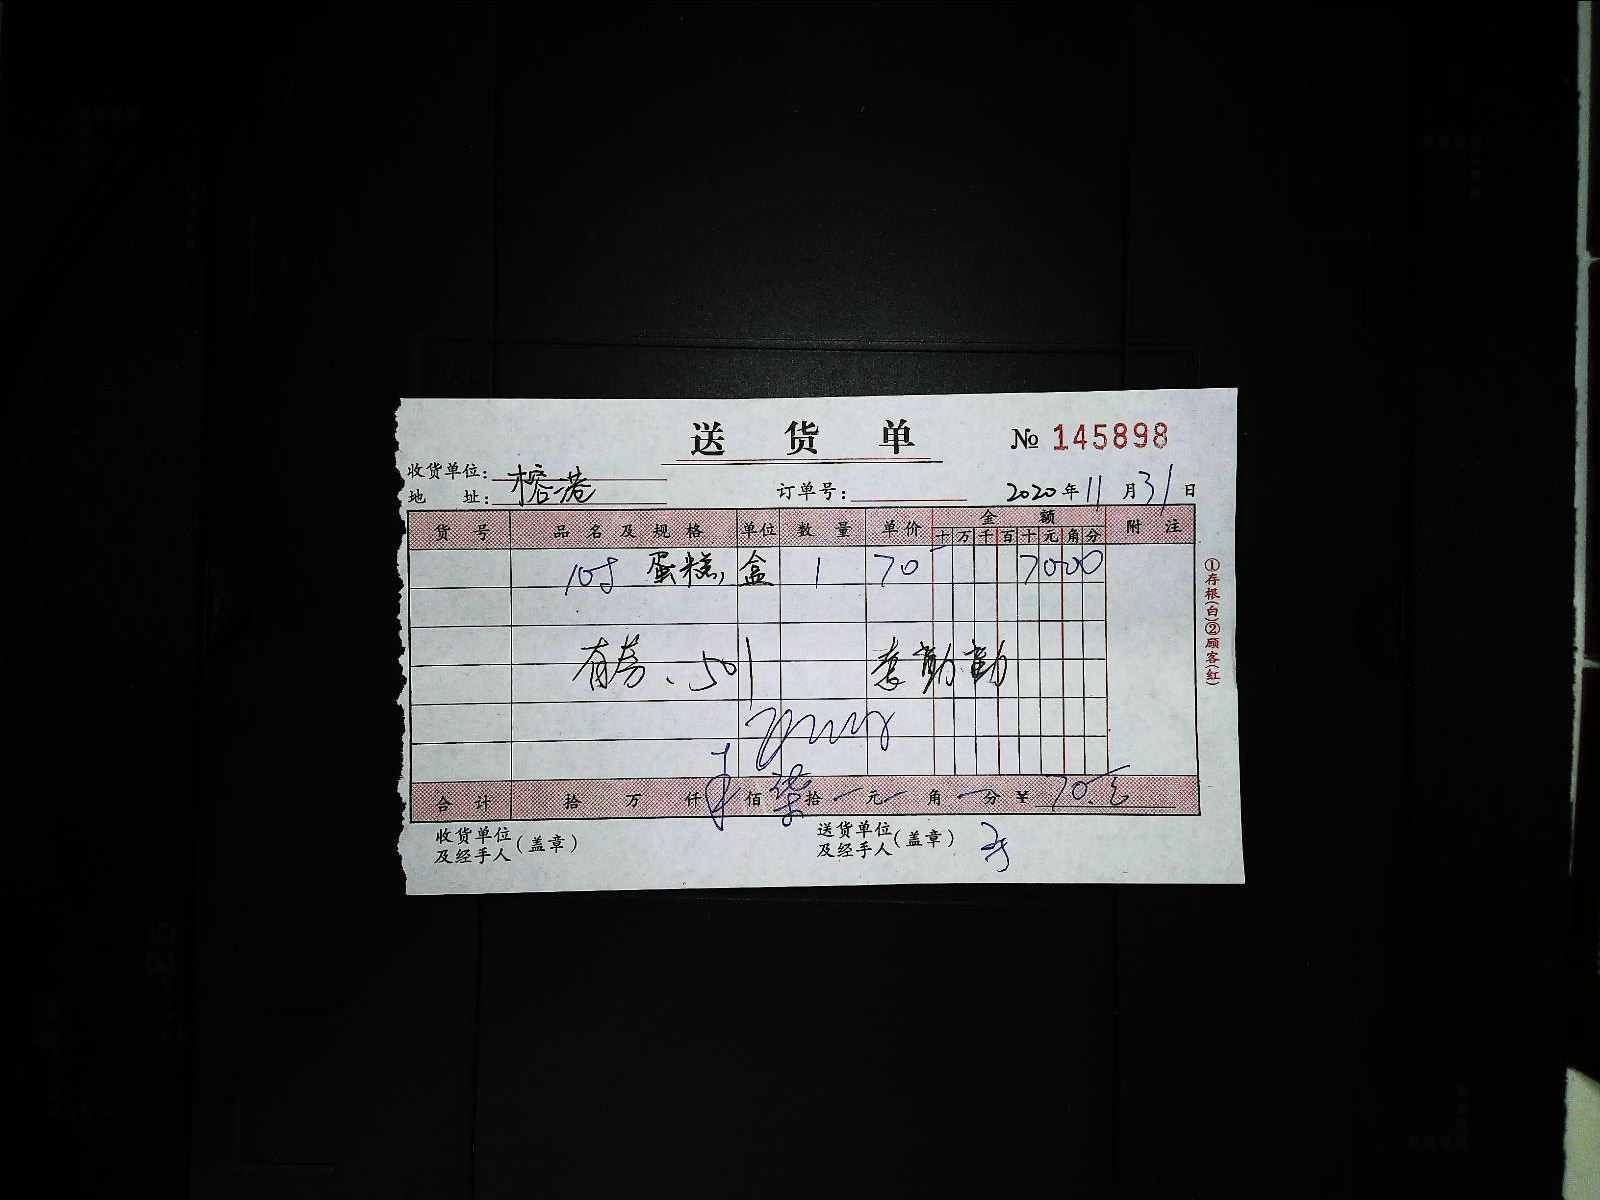 送货单 № 145898
收货单位: 榕港
地址: 订单号: 2020年11月31日
货号 品名及规格 单位 数量 单价 金额 附注
十 万 千 百 十 元 角 分
10寸 蛋糕, 盒 1 70 7000
501
合计 拾 万 仟 佰 柒拾 元 角 分 ¥ 70.元
收货单位及经手人(盖章) 送货单位及经手人(盖章)
①存根(白)②顾客(红)